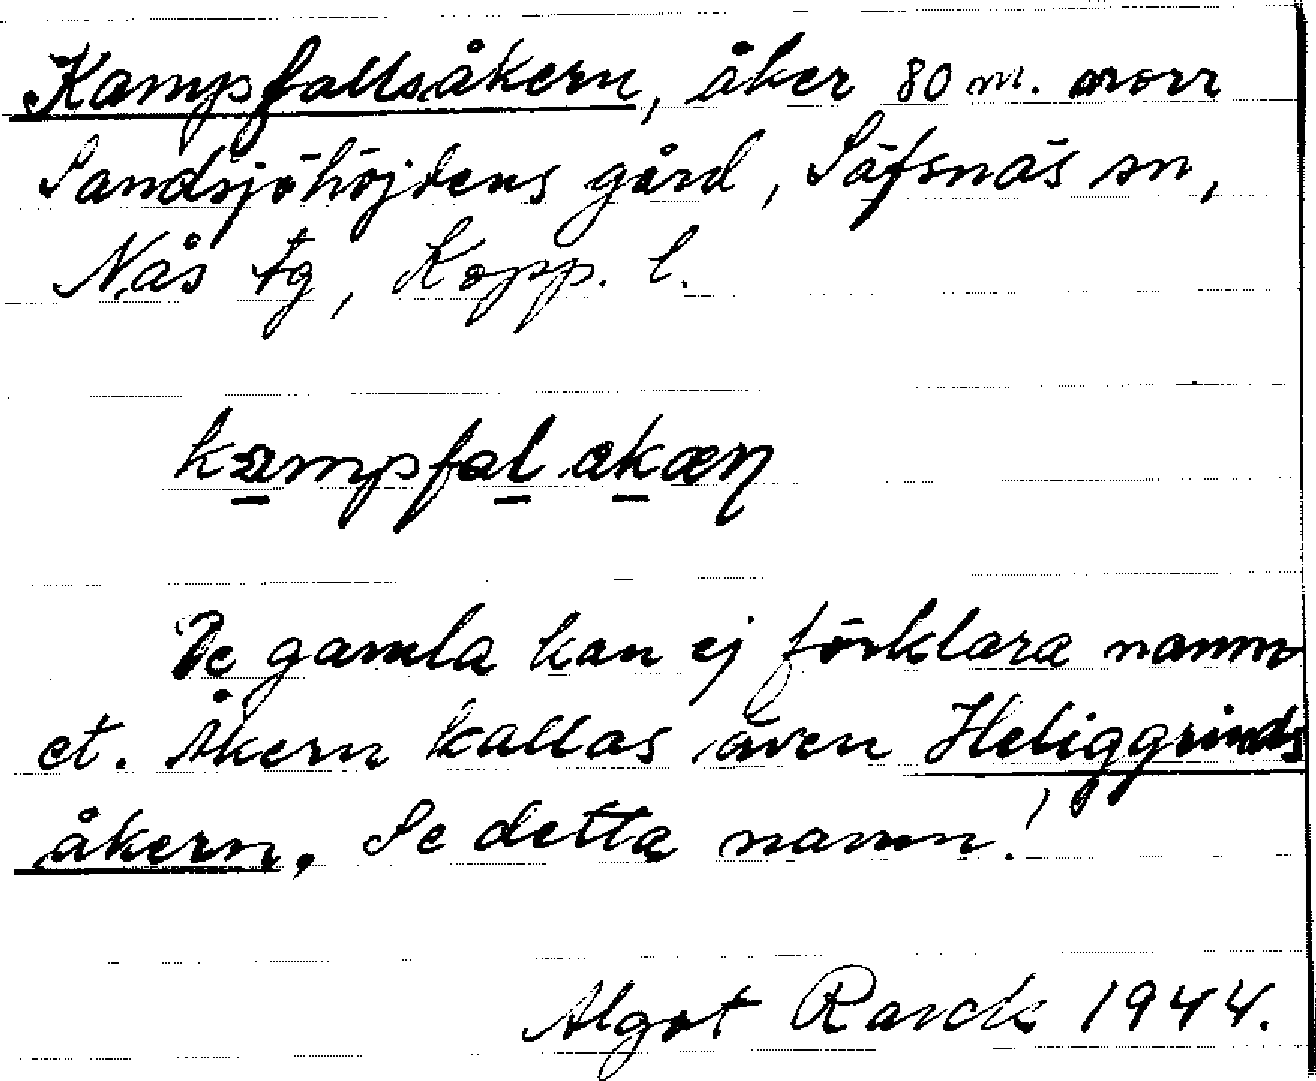 Kampfallsåkern, åker 80 m. norr
Sandsjöhöjdens gård, Säfsnäs sn,
Nås tg, Kopp. l.
kampfal akæɳ
De gamla kan ej förklara namn
et. Åkern kallas även Heliggrinds
åkern. Se detta namn!
Algot Rarck 1944.